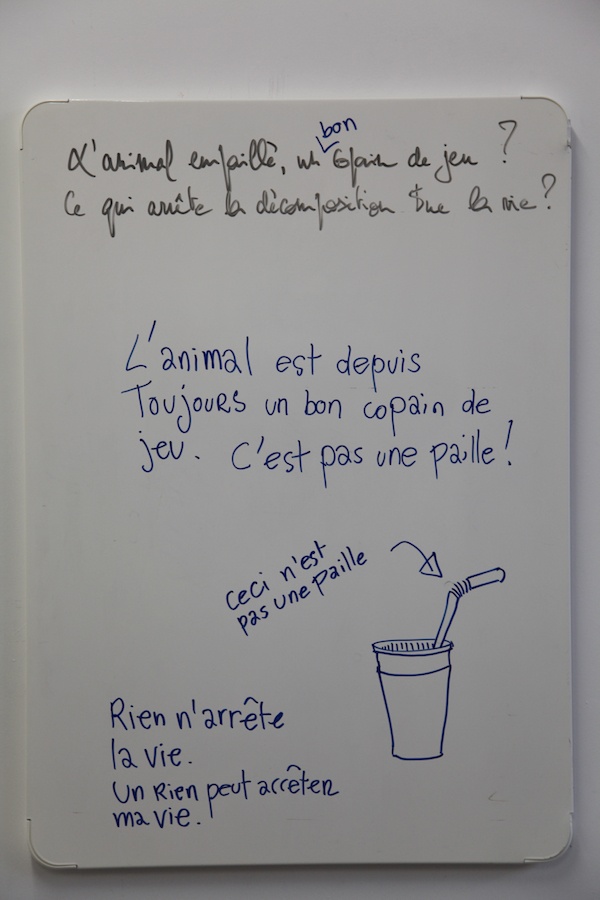 L'animal empaillé, un bon copain de jeu ?
Ce qui arrête la décomposition que la vie ?
L'animal est depuis
Toujours un bon copain de
jeu. C'est pas une paille !
ceci n'est
pas une paille
Rien n'arrête
la vie.
Un Rien peut arrêter
ma vie.